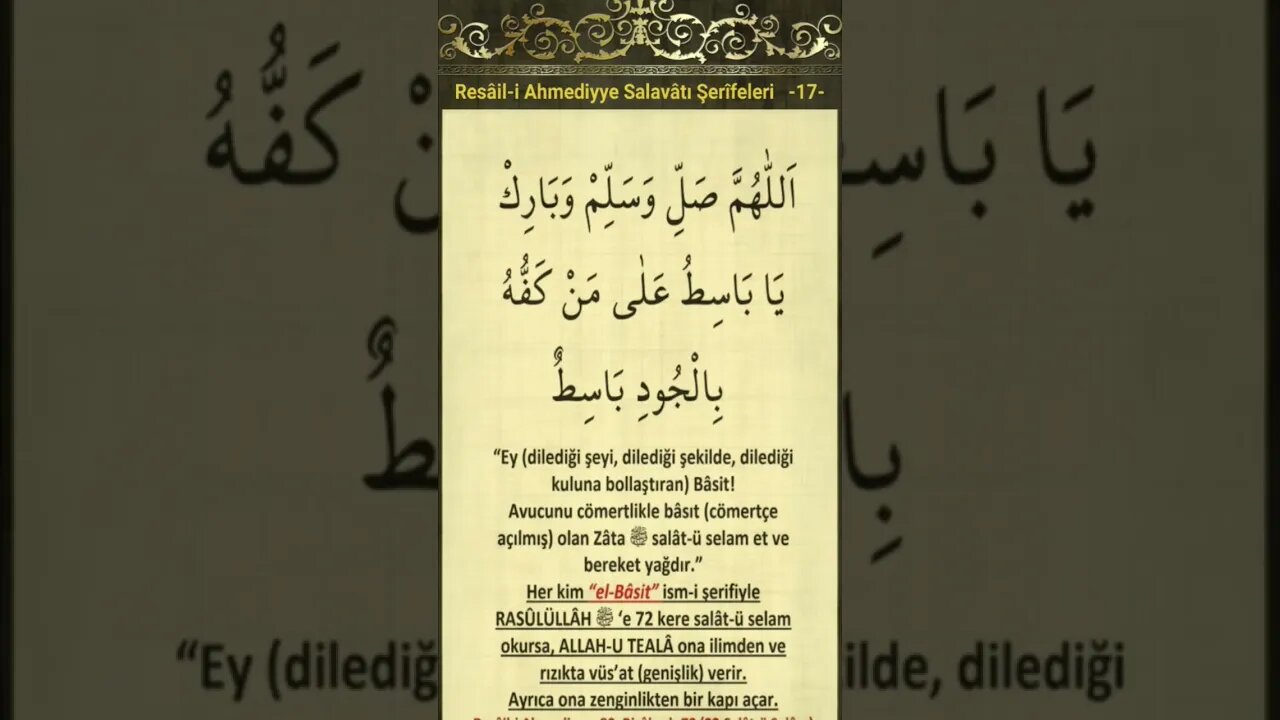 Resâil-i Ahmediyye Salavâtı Şerîfeleri -17-
اَللّٰهُمَّ صَلِّ وَسَلِّمْ وَبَارِكْ
يَا بَاسِطُ عَلٰى مَنْ كَفُّهُ
بِالْجُودِ بَاسِطٌ
“Ey (dilediği şeyi, dilediği şekilde, dilediği
kuluna bollaştıran) Bâsit!
Avucunu cömertlikle bâsıt (cömertçe
açılmış) olan Zâta ﷺ salât-ü selam et ve
bereket yağdır.”
Her kim “el-Bâsit” ism-i şerifiyle
RASÛLÜLLÂH ﷺ ‘e 72 kere salât-ü selam
okursa, ALLAH-U TEALÂ ona ilimden ve
rızıkta vüs’at (genişlik) verir.
Ayrıca ona zenginlikten bir kapı açar.